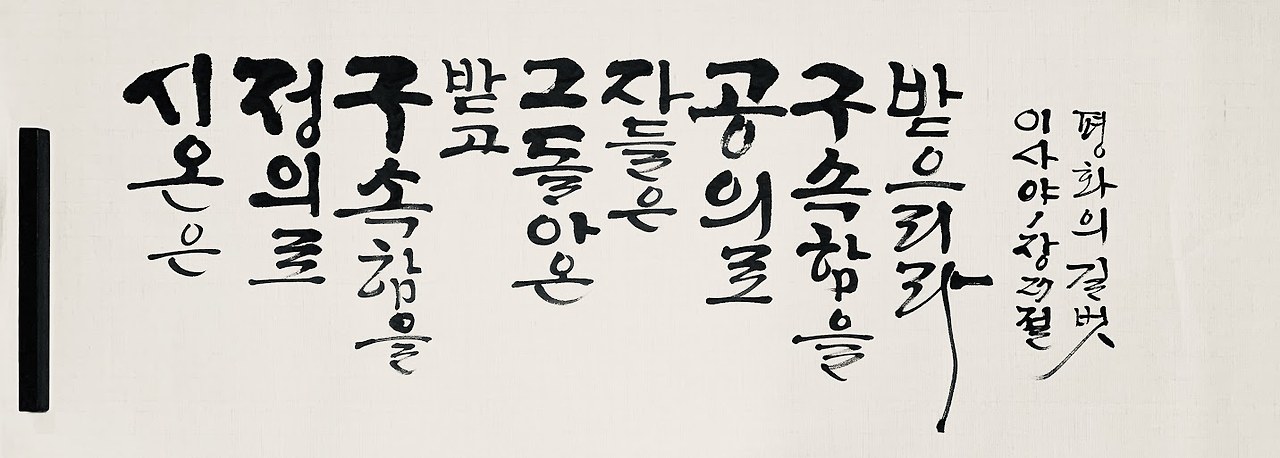 시온은
정의로
구속함을
받고
그돌아온
자들은
공의로
구속함을
받으리라
이사야 1장 27절
평화의 길벗